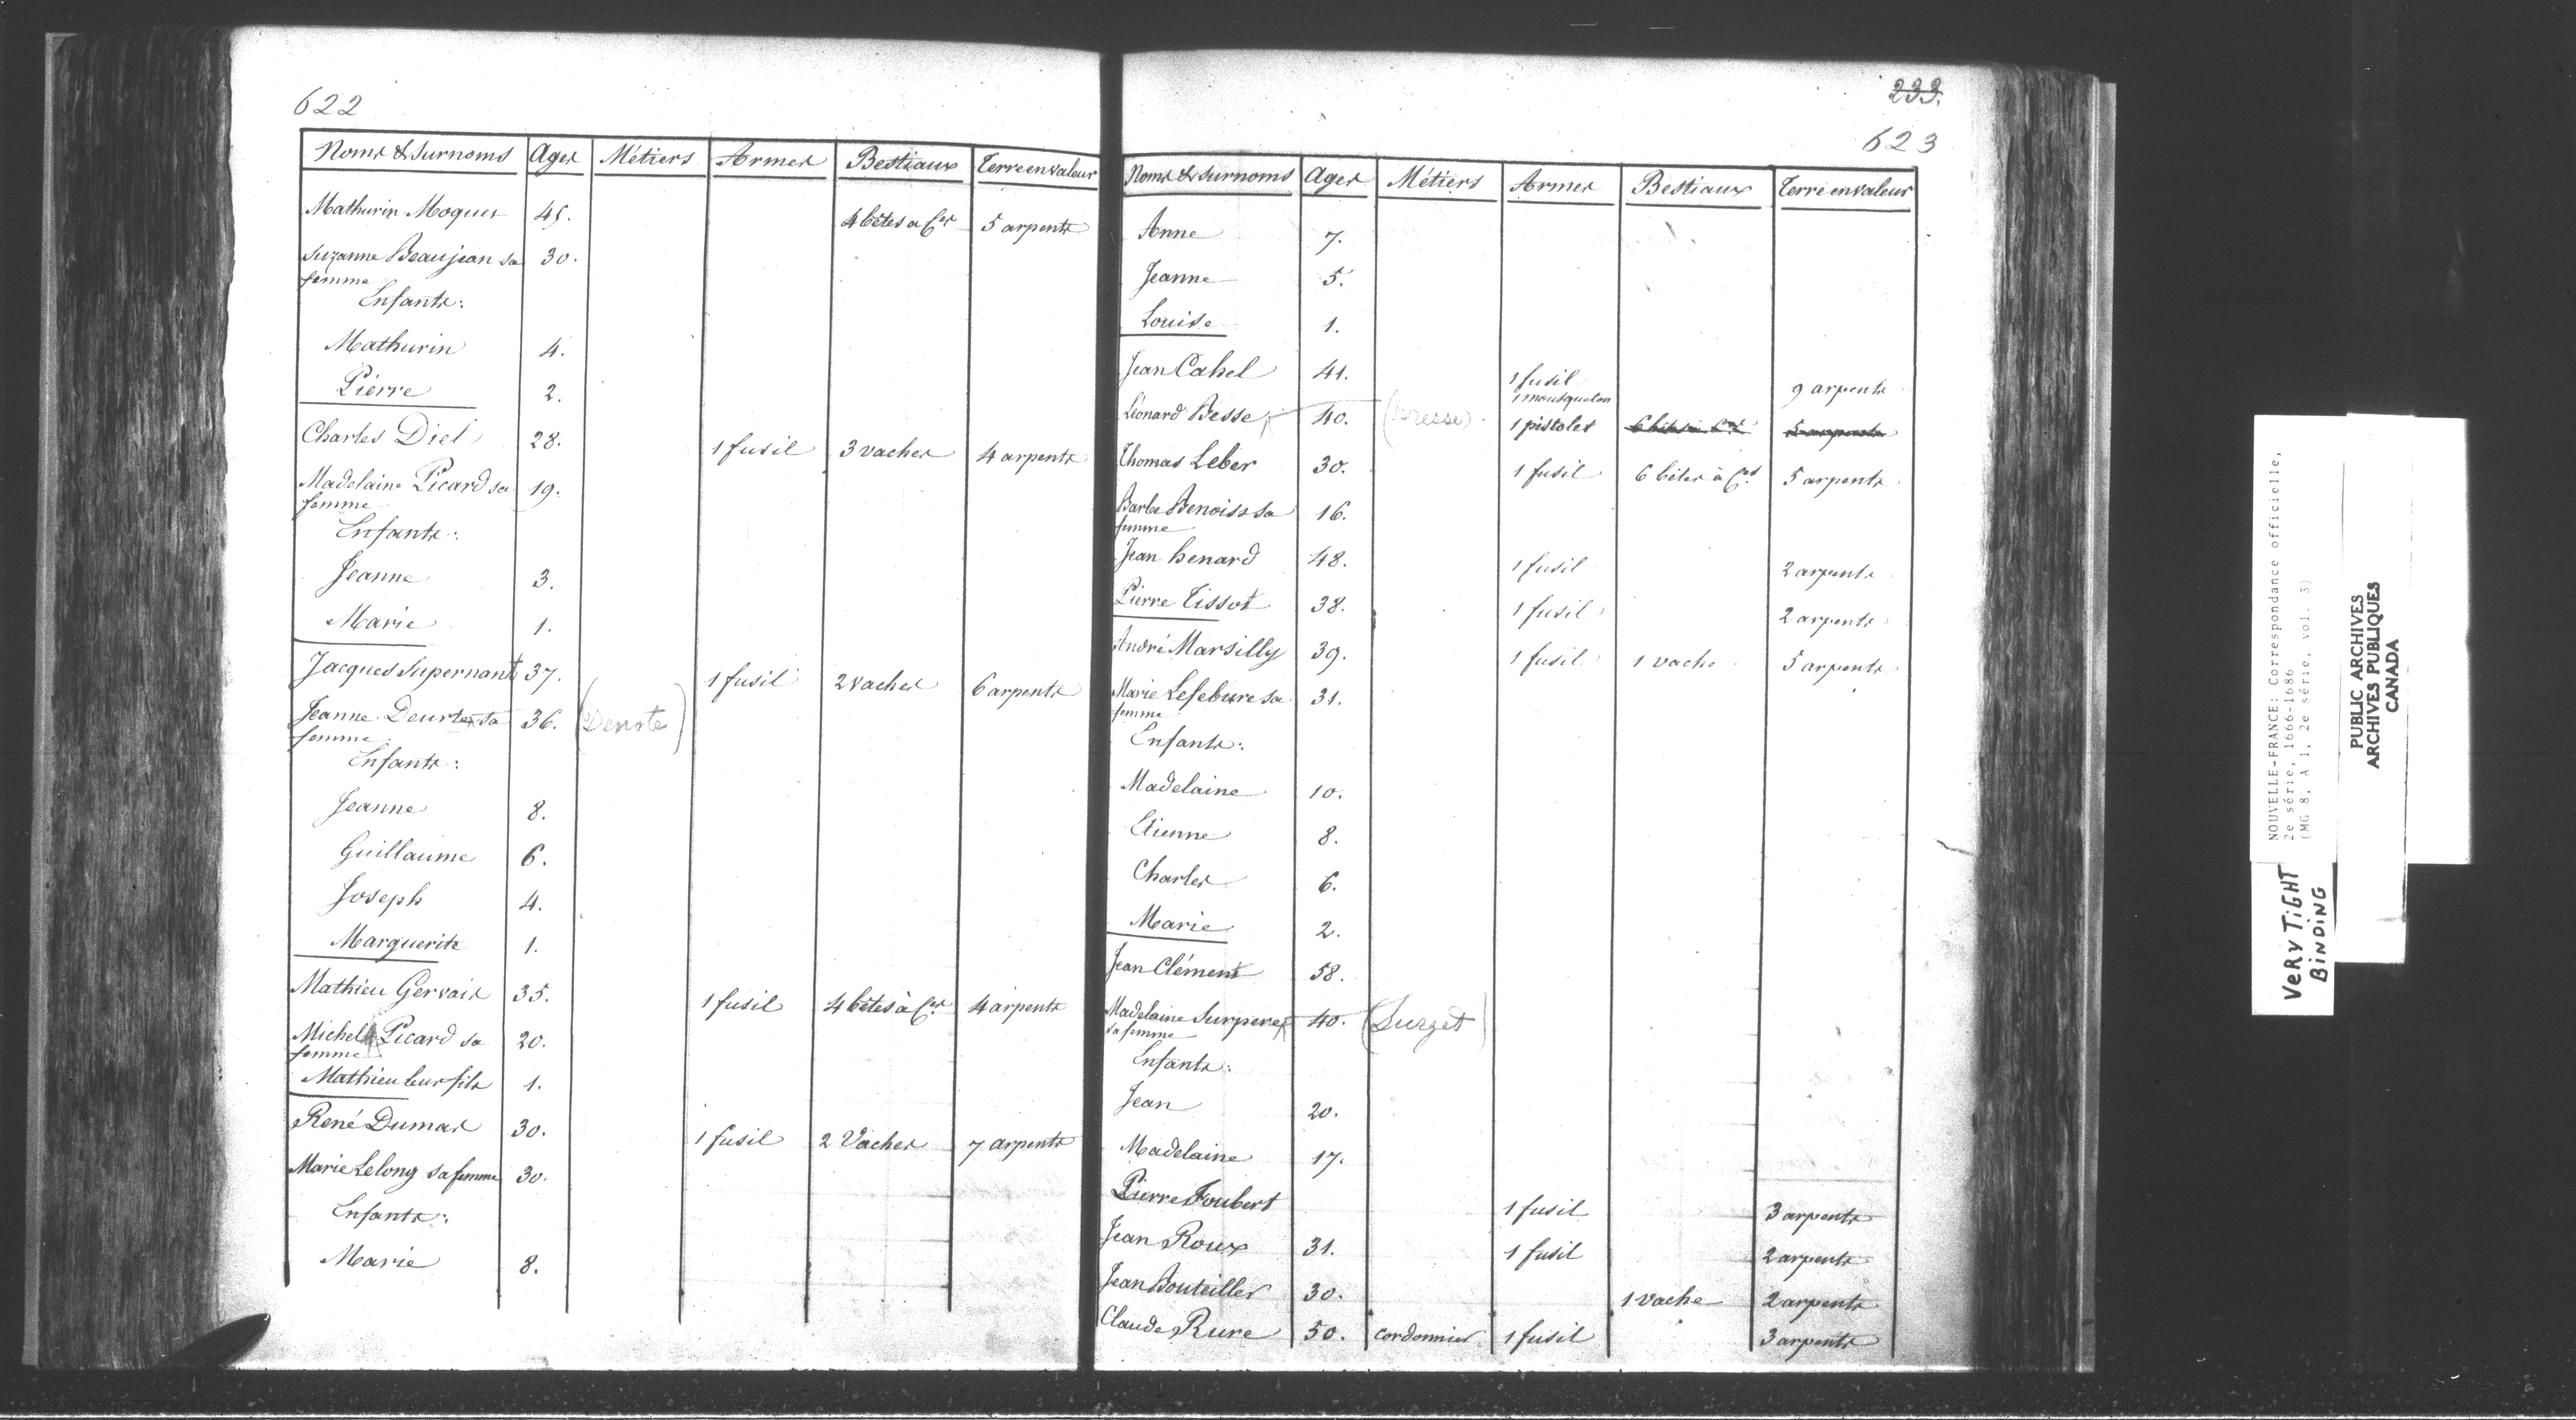 622
Noms & Surnoms Ages Métiers Armes Bestiaux Terre en valeur
Mathurin Moquer 45. 4 bêtes a Ces 5 arpents
Suzanne Beaujean sa 30.
femme
Enfants:
Mathurin 4.
Pierre 2.
Charles Diel 28. 1 fusil 3 vaches 4 arpents
Madelaine Picard sa 19.
femme
Enfants:
Jeanne 3.
Marie 1.
Jacques Supernant 37. 1 fusil 2 vaches 6 arpents
Jeanne Deurtes sa 36. (Denote)
femme
Enfants:
Jeanne 8.
Guillaume 6.
Joseph 4.
Marguerite 1.
Mathieu Gervais 35. 1 fusil 4 bêtes à Ces 4 arpents
Michelle Picard sa 20.
femme
Mathieu leur fils 1.
René Dumas 30. 1 fusil 2 Vaches 7 arpents
Marie Lelong sa femme 30.
Enfants:
Marie 8.
233.
623
Noms & surnoms Ages Métiers Armes Bestiaux Terre en valeur
Anne 7.
Jeanne 5.
Louise 1.
Jean Cahel 41. 1 fusil 9 arpents
1 mousqueton
Léonard Besse 40. 1 pistolet 6 bêtes à Ces 5 arpents
Thomas Leber 30. 1 fusil 6 bêtes à Ces 5 arpents
Barbe Benoist sa 16.
femme
Jean henard 48. 1 fusil 2 arpents
Pierre Tissot 38. 1 fusil 2 arpents
André Marsilly 39. 1 fusil 1 vache 5 arpents
Marie Lefebure sa 31.
femme
Enfants:
Madelaine 10.
Etienne 8.
Charles 6.
Marie 2.
Jean Clément 58.
Madelaine Surperet 40. (Surget)
sa femme
Enfants:
Jean 20.
Madelaine 17.
Pierre Foubert 1 fusil 3 arpents
Jean Roux 31. 1 fusil 2 arpents
Jean Bouteiller 30. 1 vache 2 arpents
Claude Rure 50. cordonnier 1 fusil 3 arpents
NOUVELLE-FRANCE: Correspondance officielle,
2e série, 1666-1686
(MG 8, A 1, 2e série, vol. 3)
PUBLIC ARCHIVES
ARCHIVES PUBLIQUES
CANADA
VERY TIGHT
BINDING